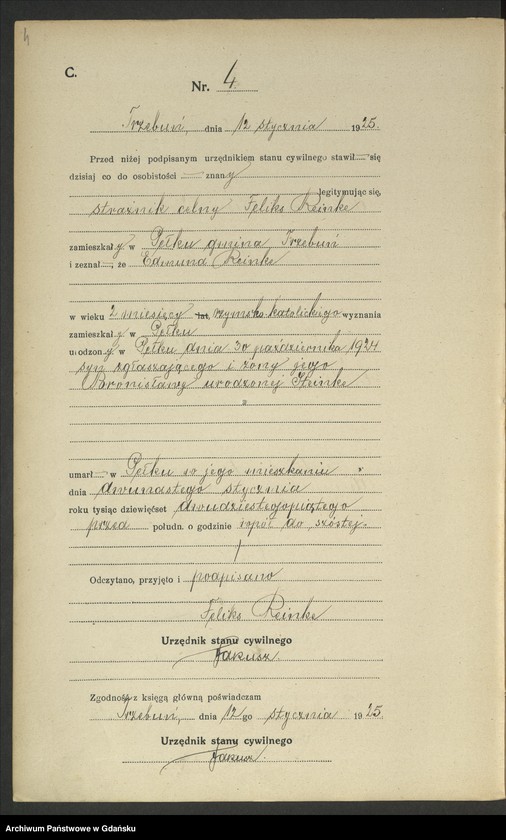 4
C.
Nr. 4
Trzebuń, dnia 12 stycznia 1925.
Przed niżej podpisanym urzędnikiem stanu cywilnego stawił się
dzisiaj co do osobistości znany
legitymując się,
strażnik celny Feliks Reinke
zamieszkały w Pełku gmina Trzebuń
i zeznał, że Edmund Reinke
w wieku 2 miesięcy lat, rzymsko katolickiego wyznania
zamieszkały w Pełku
urodzony w Pełku dnia 30 października 1924
syn zgłaszającego i żony jego
Bronisławy urodzonej
umarł w Pełku w jego mieszkaniu
dnia dwunastego stycznia
roku tysiąc dziewięćset dwudziestegopiątego
przed połudn. o godzinie wpół do szóstej.
Odczytano, przyjęto i podpisano
Feliks Reinke
Urzędnik stanu cywilnego
Jakusz.
Zgodność z księgą główną poświadczam
Trzebuń, dnia 12go stycznia 1925.
Urzędnik stanu cywilnego
Jakusz.
Archiwum Państwowe w Gdańsku